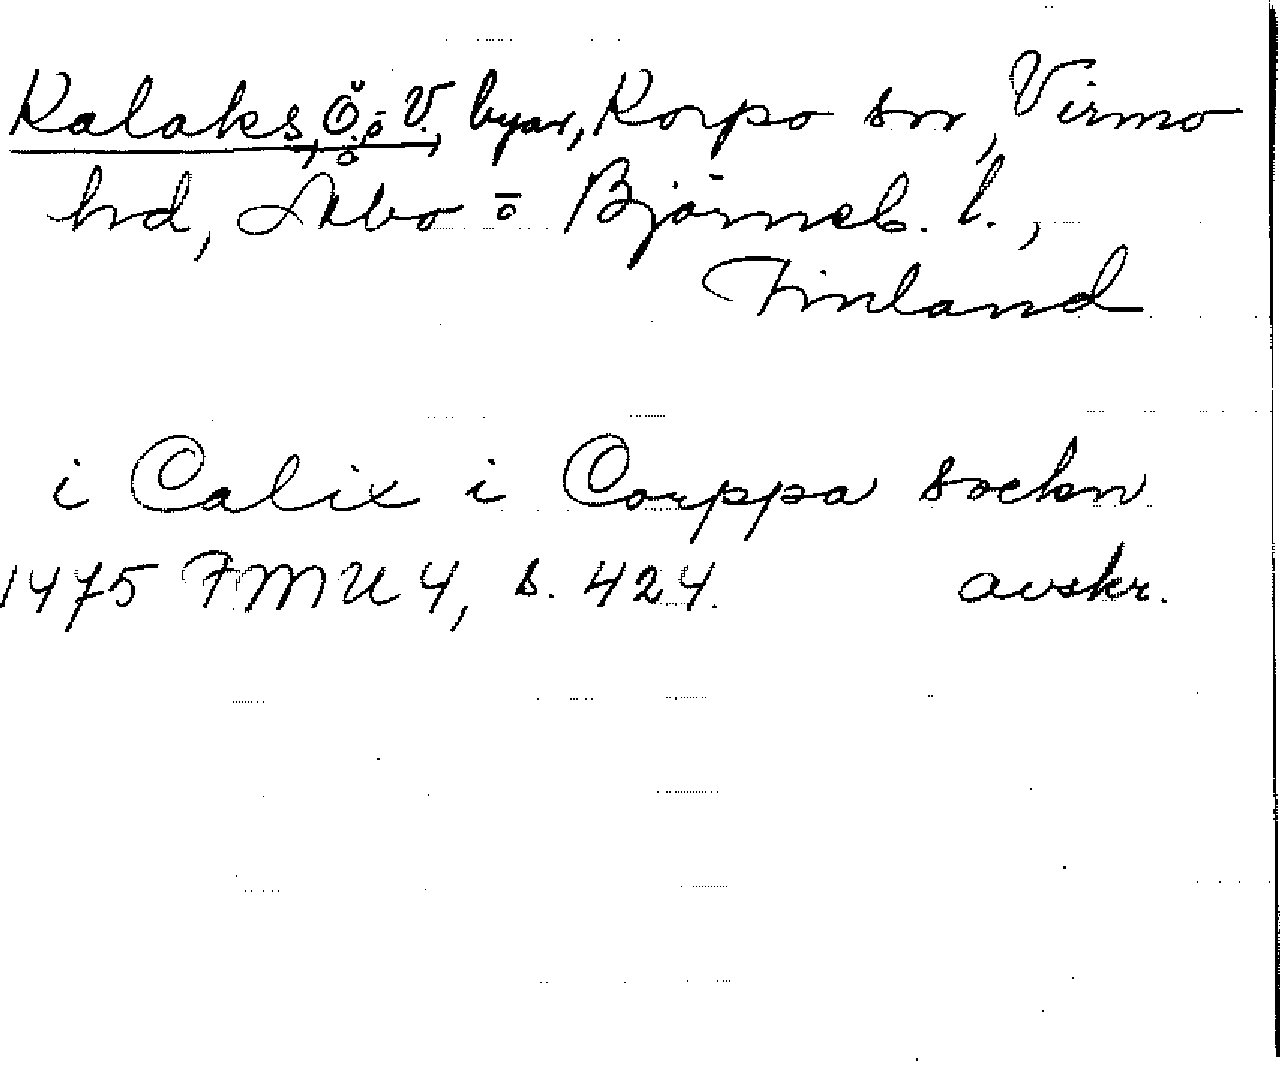 Kalaks, Ö. o. V., byar, Korpo sn, Virmo
hd, Åbo o Björneb. l.,
Finland
i Calix i Corppa sockn
1475 FMU 4, s. 424. avskr.